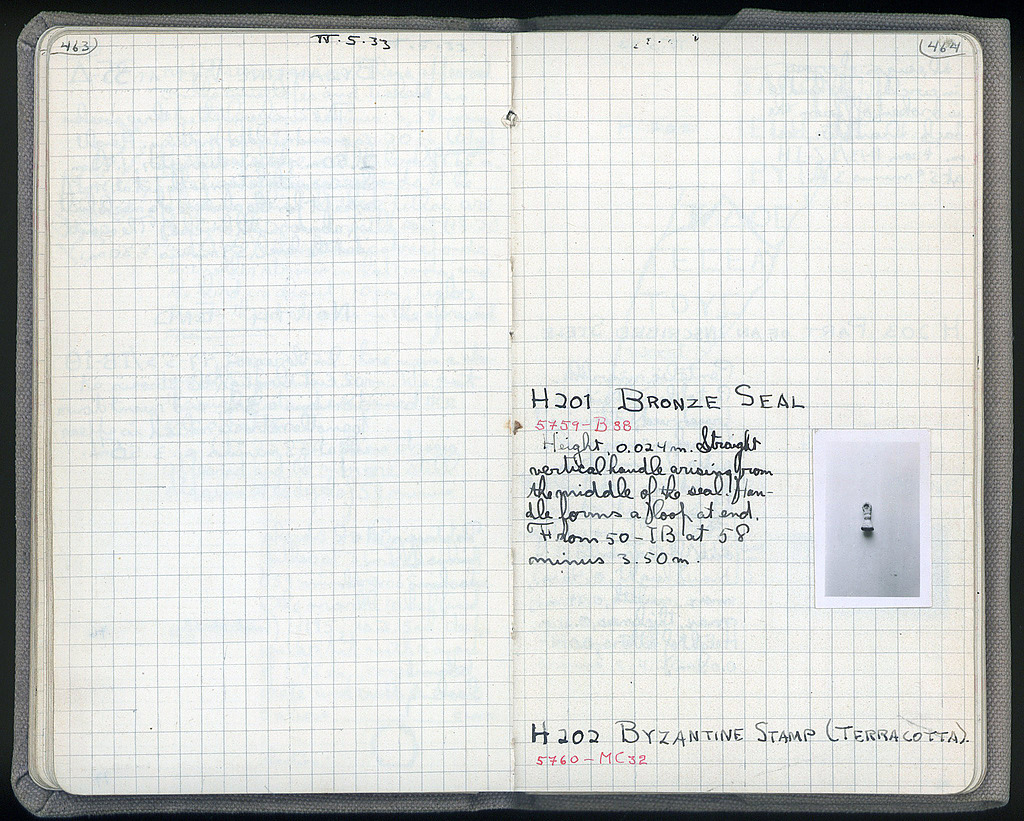 463
IV.5.33
464
H201 BRONZE SEAL
5759-B 88
Height, 0.024m. Straight
vertical handle arising from
the middle of the seal. Han-
dle forms a loop at end.
From 50-ΙΒ at 58
minus 3.50m.
H202 BYZANTINE STAMP (TERRACOTTA).
5760-MC32